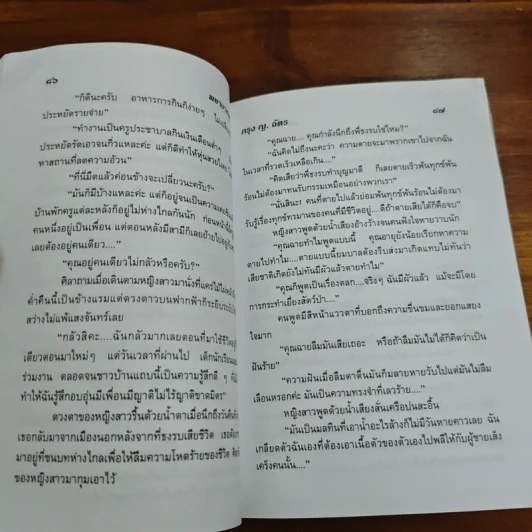 ๘๖
"ก็ดีนะครับ อาหารการกินก็ง่ายๆ
ประหยัดรายจ่าย"
"ทำงานเป็นครูประชาบาลกินเงินเดือนต่ำๆ
ประหยัดรัดเอวจนกิ่วแหละค่ะ แต่ก็ดีทำให้หุ่นสวย
หาสถานที่ลดความอ้วน"
"ที่นี่มืดแล้วค่อนข้างจะเปลี่ยวนะครับ?"
"มันก็มีบ้างแหละค่ะ แต่ก็อยู่จนเป็นความเคย
บ้านพักครูแต่ละหลังก็อยู่ไม่ห่างไกลกันนัก ก่อนหน้านี้
คนหนึ่งอยู่เป็นเพื่อน แต่ตอนหลังมีสามีก็เลยย้ายไป
เลยต้องอยู่คนเดียว...."
"คุณอยู่คนเดียวไม่กลัวหรือครับ?"
ศิลาถามเมื่อเดินตามหญิงสาวมานั่งที่แคร่ไม้ไผ่
ค่ำคืนนี้เป็นข้างแรมแต่ดวงดาวบนฟากฟ้าก็ระยิบระยับ
สว่างไม่แพ้แสงจันทร์เลย
"กลัวสิคะ....ฉันกลัวมากเลยตอนที่มาใช้ชีวิต
เดียวตอนมาใหม่ๆ แต่วันเวลาที่ผ่านไป เด็กนักเรียน
ร่วมงาน ตลอดจนชาวบ้านแถบนี้เป็นความรู้สึกดี ๆ ที่
ทำให้ฉันรู้สึกอบอุ่นมีเพื่อนมีญาติไม่ไร้ญาติขาดมิตร"
ดวงตาของหญิงสาวรื้นด้วยน้ำตาเมื่อนึกถึงวันคืน
เธอกลับมาจากเมืองนอกหลังจากที่ธงรบเสียชีวิต เธอ
มาอยู่ที่ชนบทห่างไกลเพื่อให้ลืมความโหดร้ายของชีวิต
ของหญิงสาวมากุมเอาไว้
กรุง ญ. ฉัตร
๘๗
"คุณฉาย.... คุณกำลังนึกถึงพี่ธงรบใช่ไหม?"
"ฉันคิดไม่ถึงนะคะว่า ความตายจะมาพรากเขาไปจากฉัน
ในเวลาที่รวดเร็วเหลือเกิน...."
"คิดเสียว่าพี่ธงรบทำบุญมาดี ก็เลยตายเร็วพ้นทุกข์พ้น
ร้อนไม่ต้องมาทนรับกรรมเหมือนอย่างพวกเรา"
"นั่นสินะ! คนที่ตายไปแล้วย่อมพ้นทุกข์พ้นร้อนไม่ต้องมา
รับรู้เรื่องทุกข์ทรมานของคนที่มีชีวิตอยู่....ดีถ้าตายเสียได้ก็คือจบ"
หญิงสาวพูดด้วยน้ำเสียงอ้างว้างจนคนฟังใจหายวาบนัก
"คุณฉายทำไมพูดแบบนี้ คุณอายุยังน้อยเรียกหาความ
ตายไปทำไม....ตายแบบนี้ยมบาลต้องรีบส่งมาเกิดแทบไม่ทันว่า
เสียชาติเกิดยังไม่ทันมีผัวแล้วตายทำไม"
"คุณก็พูดเป็นเรื่องตลก....จริงๆ ฉันมีผัวแล้ว แม้จะมีโดย
การกระทำเยี่ยงสัตว์ป่า...."
คนพูดมีสีหน้าแววตาที่บอกถึงความขื่นขมและยอกแสยง
ใจมาก
"คุณฉายลืมมันเสียเถอะ หรือถ้าลืมมันไม่ได้ก็คิดว่าเป็น
ฝันร้าย"
"ความฝันเมื่อลืมตาตื่นมันก็มลายหายวับไปแต่มันไม่ลืม
เลือนหรอกค่ะ มันเป็นความทรงจำที่เลวร้าย...."
หญิงสาวพูดด้วยน้ำเสียงสั่นเครือปนสะอื้น
"มันเป็นมลทินที่เอาน้ำอะไรล้างก็ไม่มีวันหายคาวเลย ฉัน
เกลียดตัวฉันเองที่ต้องเอาเนื้อตัวของตัวเองไปพลีให้กับผู้ชายเส็ง
เคร็งคนนั้น...."